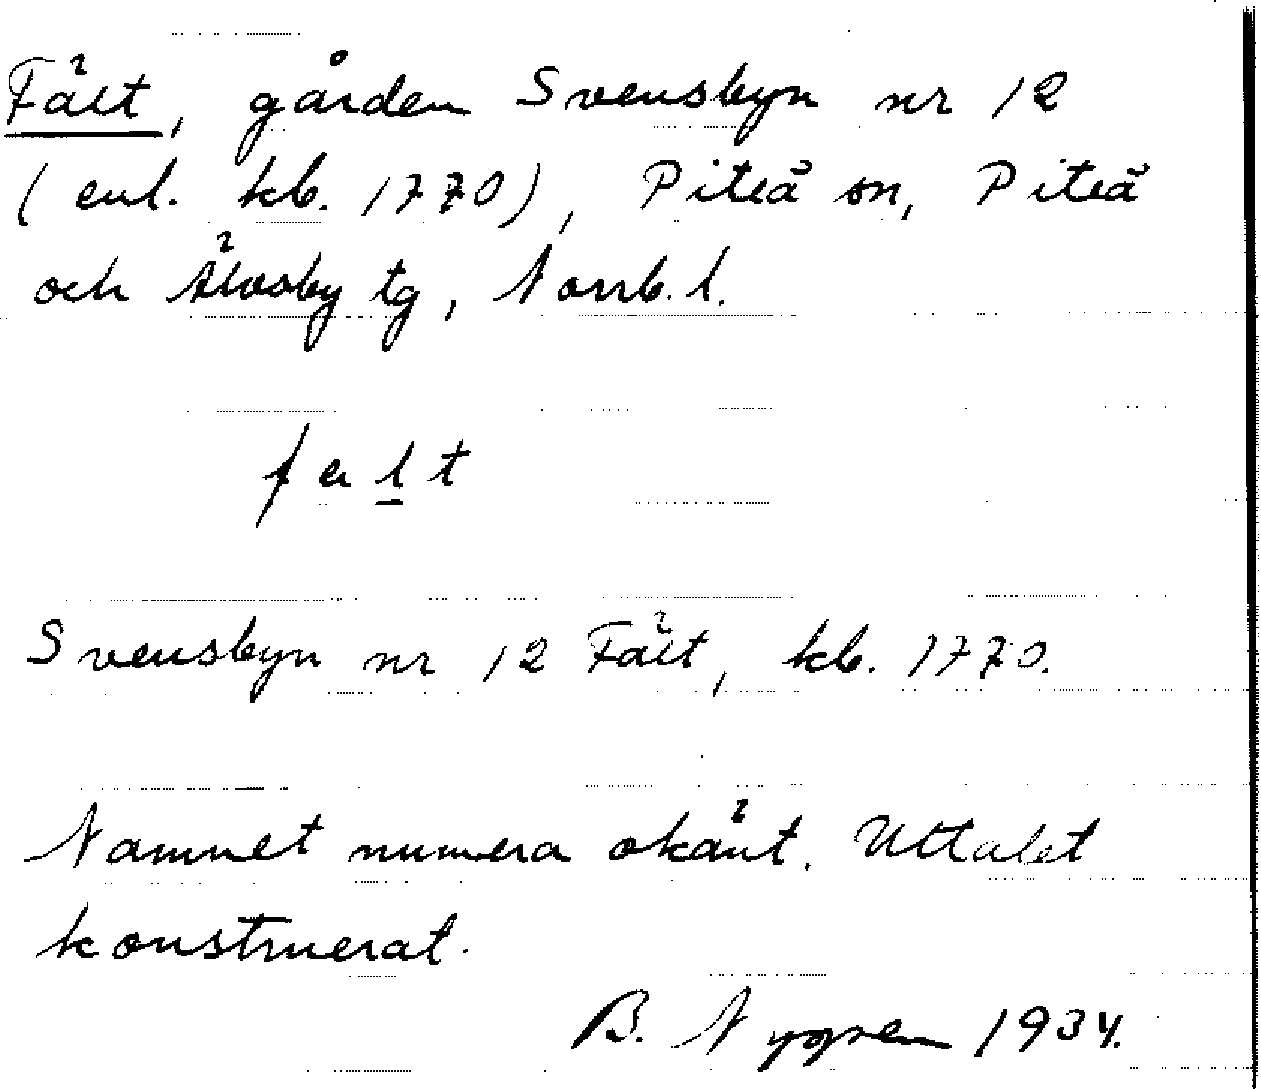 Fält, gården Svensbyn nr 12
(enl. kb. 1770), Piteå sn, Piteå
och Älvsby tg, Norrb. l.
falt
Svensbyn nr 12 Fält, kb. 1770.
Namnet numera okänt. Uttalet
konstruerat.
B. Nygren 1934.